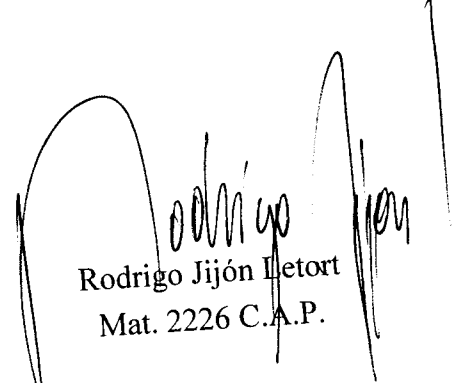 Rodrigo Jijón
Rodrigo Jijón Letort
Mat. 2226 C.A.P.